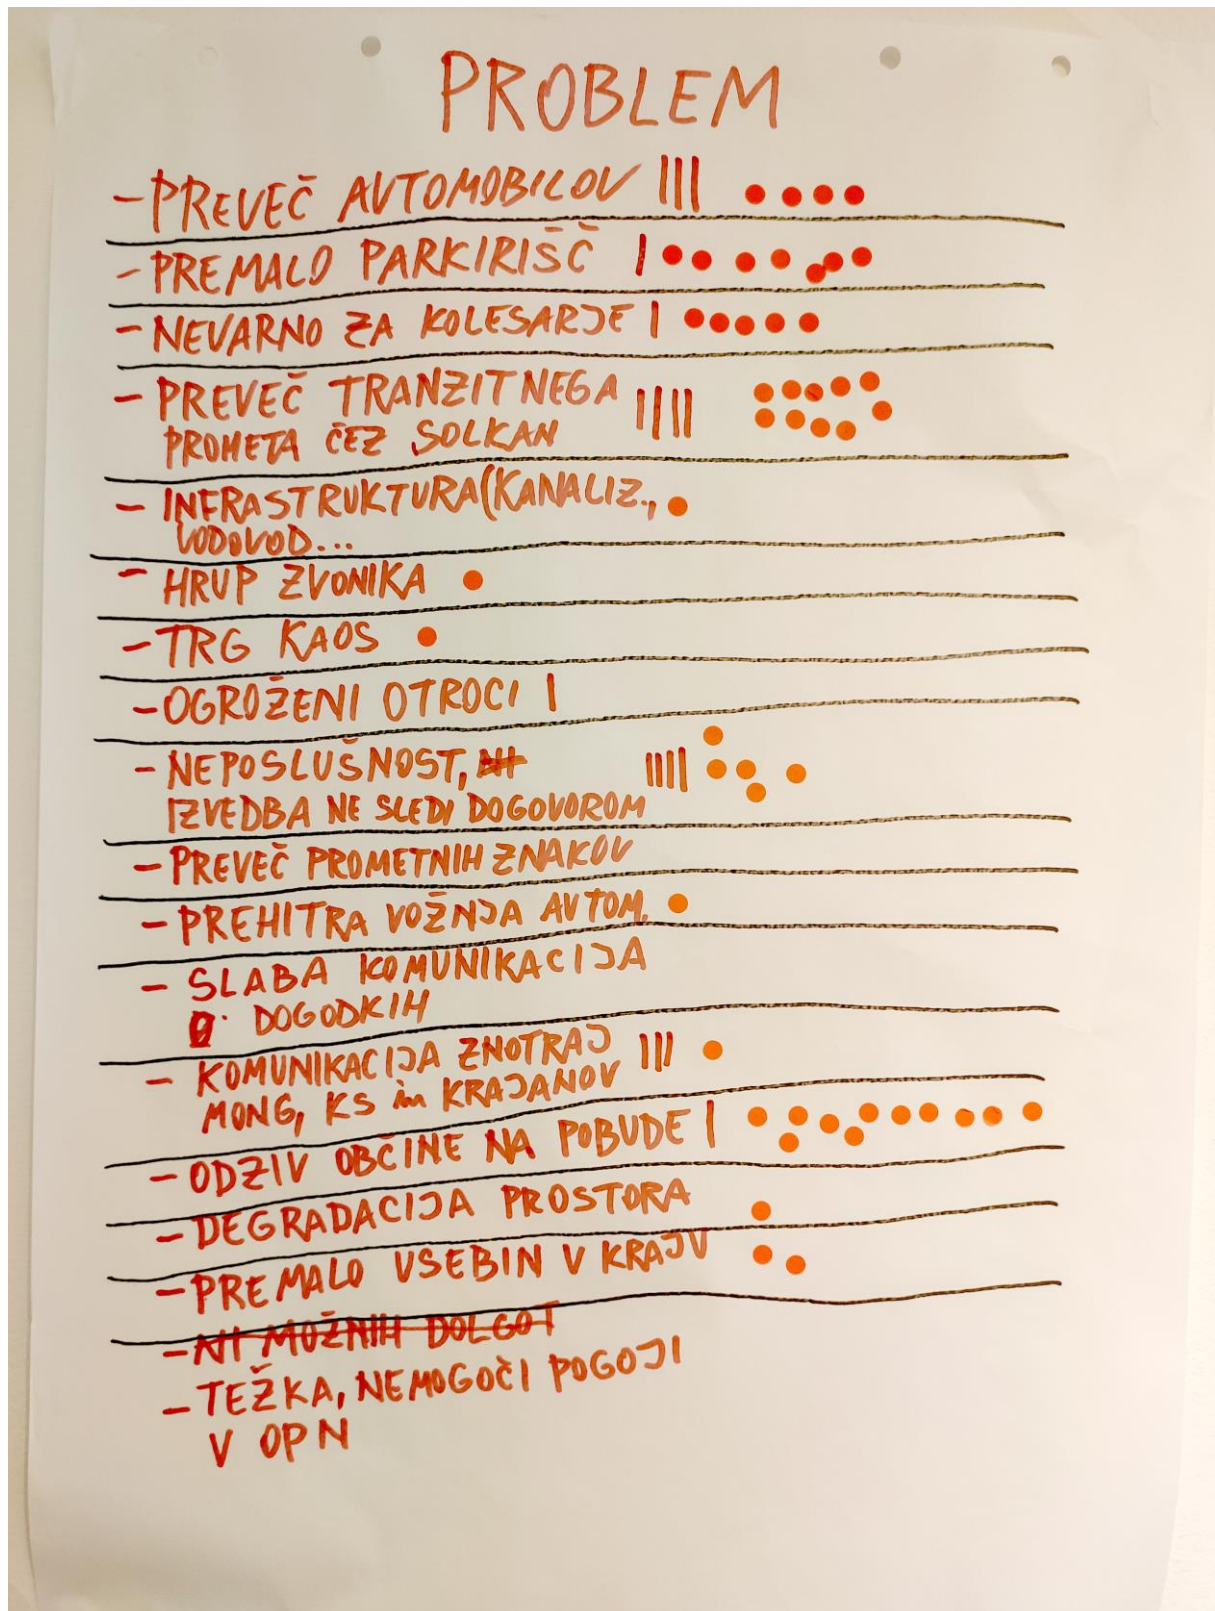 PROBLEM
- PREVEČ AVTOMOBILOV |||
- PREMALO PARKIRIŠČ |
- NEVARNO ZA KOLESARJE |
- PREVEČ TRANZITNEGA ||||
PROMETA ČEZ SOLKAN
- INFRASTRUKTURA (KANALIZ.,
VODOVOD...
- HRUP ZVONIKA
- TRG KAOS
- OGROŽENI OTROCI |
- NEPOSLUŠNOST, ~~NI~~ ||||
IZVEDBA NE SLEDI DOGOVOROM
- PREVEČ PROMETNIH ZNAKOV
- PREHITRA VOŽNJA AVTOM.
- SLABA KOMUNIKACIJA
O DOGODKIH
- KOMUNIKACIJA ZNOTRAJ |||
MONG, KS in KRAJANOV
- ODZIV OBČINE NA POBUDE |
- DEGRADACIJA PROSTORA
- PREMALO VSEBIN V KRAJU
- ~~NI MOŽNIH DOLGOT~~
- TEŽKA, NEMOGOČI POGOJI
V OPN